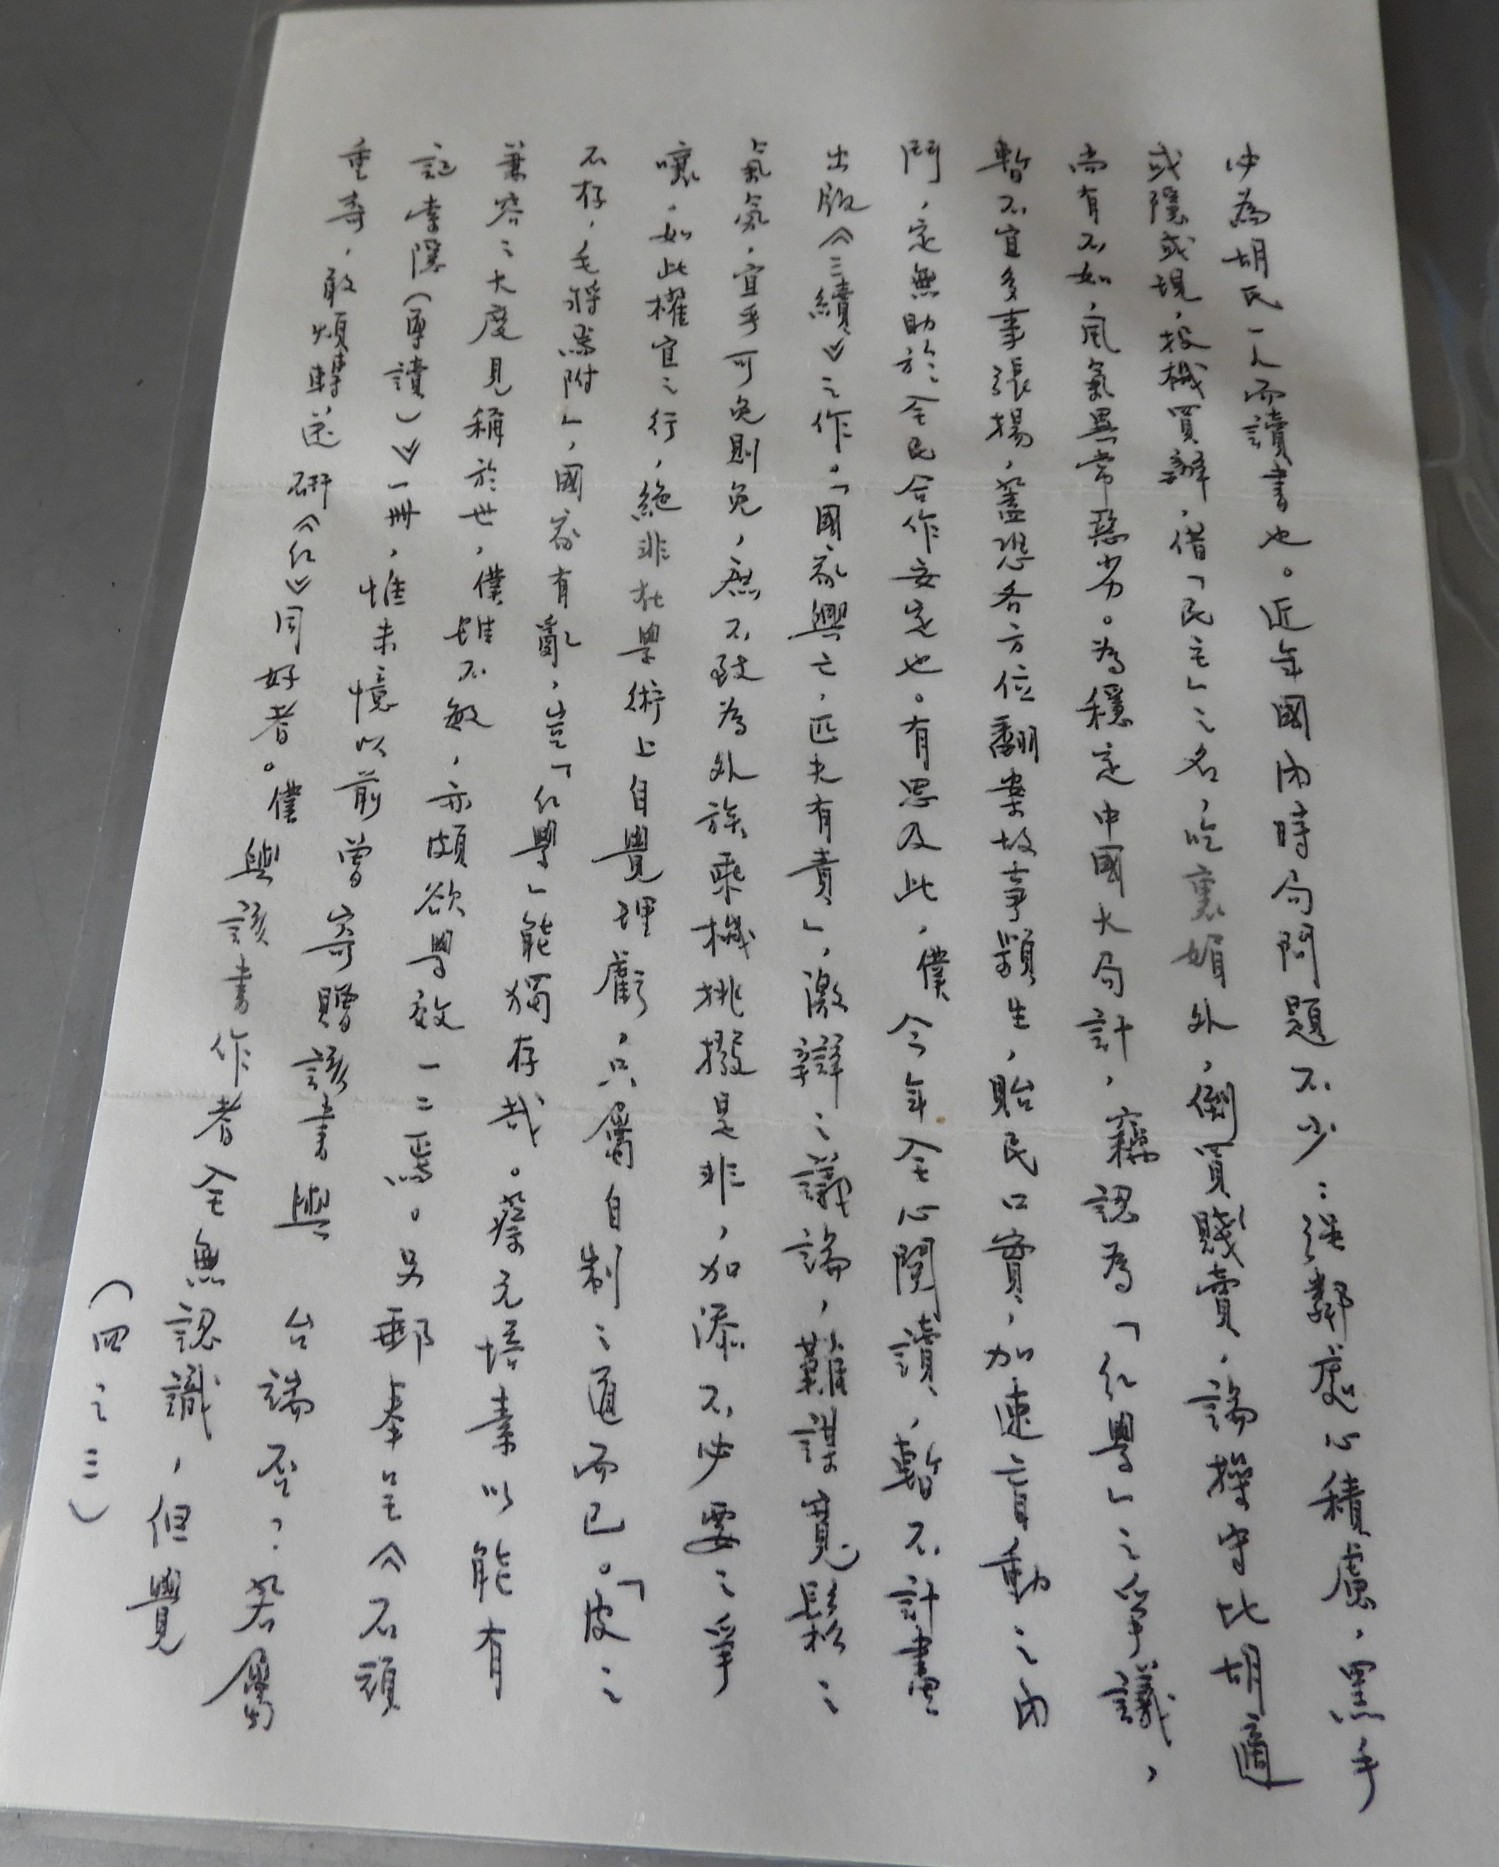 必為胡氏一人而讀書也。近年國內時局問題不少：強鄰處心積慮，黑手
或隱或現，投機買辦，借「民主」之名，吃裏媚外，倒買賤賣，論操守比胡適
尚有不如，風氣異常惡劣。為穩定中國大局計，竊認為「紅學」之爭議，
暫不宜多事張揚，蓋恐各方位翻案故事頻生，貽民口實，加速盲動之內
鬥，定無助於全民合作安定也。有思及此，僕今年全心閱讀，暫不計畫
出版《三續》之作。「國家興亡，匹夫有責」，激辯之議論，難謀寬鬆之
氣氛，宜乎可免則免，庶不致為外族乘機挑撥是非，加添不必要之爭
嚷，如此權宜之行，絕非在學術上自覺理虧，只屬自制之道而已。「皮之
不存，毛將焉附」，國家有亂，豈「紅學」能獨存哉。蔡元培素以能有
兼容之大度見稱於世，僕雖不敏，亦頗欲學效一二焉。另郵奉呈《石頭
記索隱(再讀)》一冊，惟未憶以前曾寄贈該書與　台端否？若屬
重寄，敢煩轉送　研《紅》同好者。僕與該書作者全無認識，但覺
(四之三)